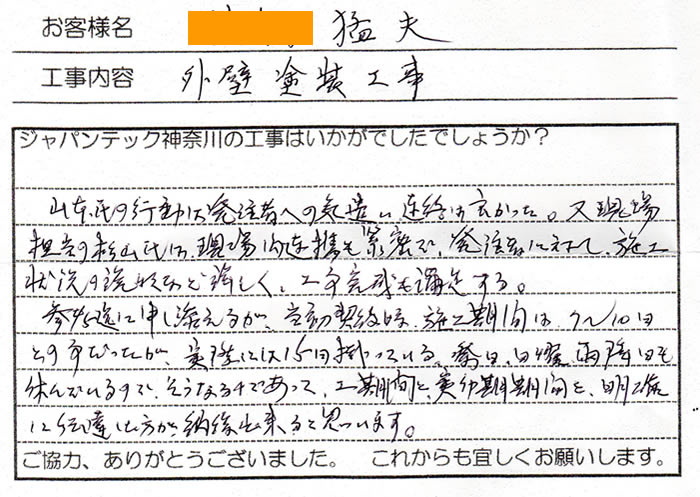 お客様名 猛夫
工事内容 外壁塗装工事
ジャパンテック神奈川の工事はいかがでしたでしょうか？
山本氏の行動は発注者への気遣い連絡は良かった。又現場
担当の杉山氏は、現場内連携も緊密で、発注者に対して、施工
状況の説明など詳しく、工事完成も満足する。
参考迄に申し添えるが、当初契約時、施工期間は、7〜10日
との事だったが、実際には15日掛っている。祭日、日曜、雨降日も
休んでいるので、そうなるのであって、工期間と、実行期間を、明確
に伝達した方が納得出来ると思います。
ご協力、ありがとうございました。 これからも宜しくお願いします。